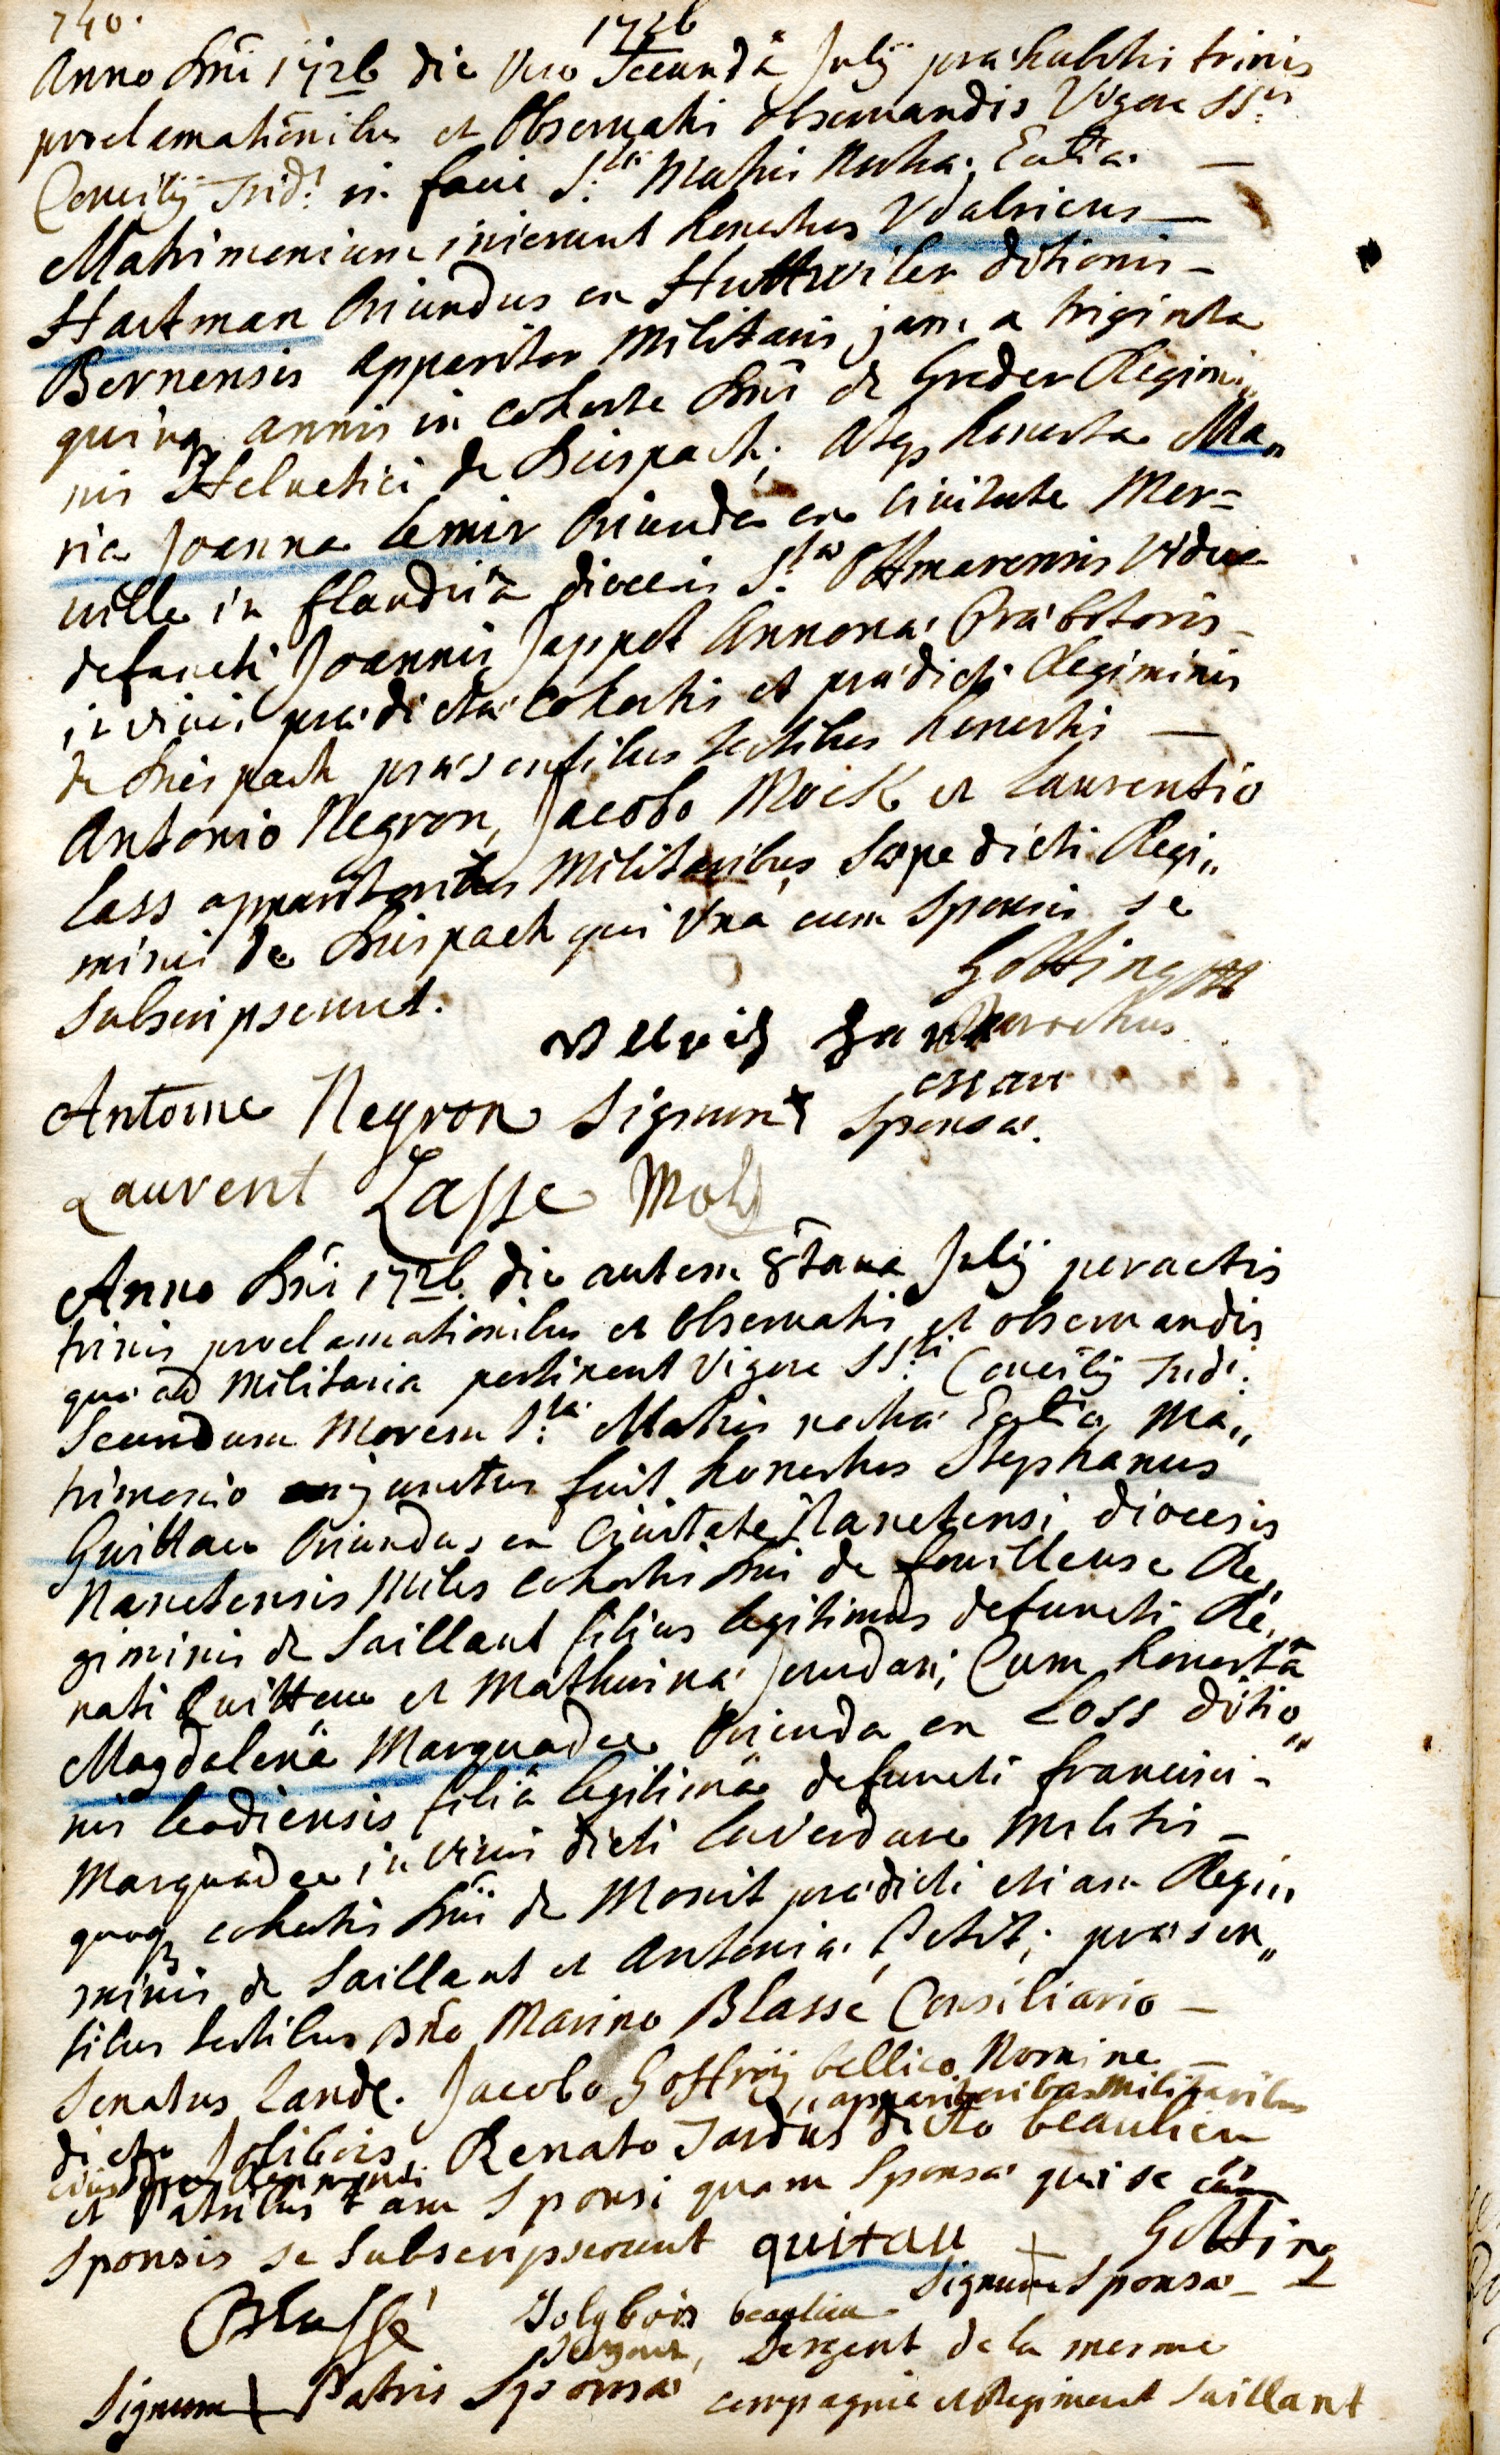 740. 1726
Anno Dni 1726 die Vero Secundâ July præhabitis trinis
proclamationibus et Observatis Observandis Vigore SSti
Concilij Trid: in facie S:tæ Matris Nostræ Eccliæ —
Matrimonium inierunt honestus Vdalricus —
Hartman Oriundus ex Huttwiler ditionis -
Bernensis apparitor Militaris jam a triginta
quinq annis in cohorte Dni de Greder Regimi„
nis Helvetici de Diespach; atq honesta Ma„
ria Joanna lemir Oriunda ex Civitate Mer=
ville in flandriâ diocesis S:ti Ottmarensis Vidua
defuncti Joannis Jappet Annonæ Præbitoris -
in vivis prædictæ cohortis et prædicti Regiminis
de Diespach præsentibus testibus honestis —
Antonio Negron, Jacobo Mock et Laurentio
Lass apparitoribus Militaribus Sæpe dicti Regi„
minis de Diespach qui Vnà cum Sponsis se
Subscripserunt. Gotting
Parochus
Vllrich Hart
man
Antoine Negron Signum + Sponsæ.
Laurent Lasse
Anno Dni 1726 die autem 8tava July peractis
trinis proclamationibus et Observatis et observandis
quæ ad Militaria pertinent Vigore SSti Concilij Trid:
Secundum Morem S:tæ Matris nostræ Eccliæ Ma„
trimonio conjunctus fuit honestus Stephanus
Guittau Oriundus ex Civitate Nanetensi diocesis
Nanetensis Miles cohortis Dni de fouilleuse Re„
giminis de Saillant filius legitimus defuncti Re„
nati Quittau et Mathurinæ Jeudari; Cum honestâ
Magdalenâ Marquadee Oriunda ex Loss ditio„
nis leodiensis filiâ legitimâ defuncti francisci -
Marquadee in vivis dicti laverdure Militis -
quoq cohortis Dni de Monit prædicti etiam Regi„
minis de Saillant et Antoniæ Petit; præsen„
tibus testibus Dno Marino Blassé Consiliario —
Senatus Landæ. Jacobo Goffroij bellico Nomine —
„apparitoribus Militaribus
dicto Jolibois Renato Tardus dicto beaulieu
et Patribus tam Sponsi quam Sponsæ qui se cum
Sponsis se Subscripserunt quitau + Gotting
Signum Sponsæ
Blassé Jolybois beaulieu
Sergent, Sergent de la mesme
Signum + Patris Sponsæ compagnie et Regiment Saillant